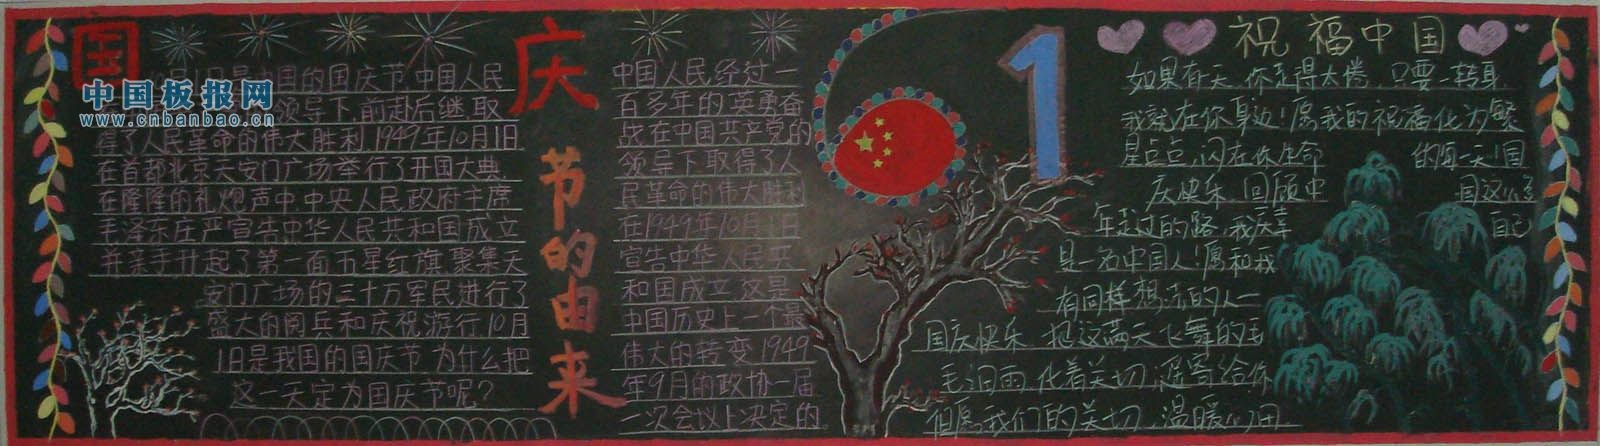 国
庆
节的由来
中国板报网
www.cnbanbao.cn
国的国庆节中国人民
领导下,前赴后继取
得了人民革命的伟大胜利1949年10月1日
在首都北京天安门广场举行了开国大典
在隆隆的礼炮声中中央人民政府主席
毛泽东庄严宣告中华人民共和国成立
并亲手升起了第一面五星红旗聚集天
安门广场的三十万军民进行了
盛大的阅兵和庆祝游行10月
1日是我国的国庆节为什么把
这一天定为国庆节呢?
中国人民经过一
百多年的英勇奋
战在中国共产党的
领导下取得了人
民革命的伟大胜利
在1949年10月1日
宣告中华人民共
和国成立这是
中国历史上一个最
伟大的转变1949
年9月的政协一届
一次会议上决定的。
1
祝福中国
如果有天,你走得太倦,只要一转身
我就在你身边!愿我的祝福化为繁
星点点,闪在你生命 的每一天!国
庆快乐 回顾中 国这么多
年走过的路,我庆幸 自己
是一名中国人!愿和我
有同样想法的人一
国庆快乐 把这满天飞舞的毛
毛细雨,化着关切,遥寄给你
但愿我们的关切,温暖心田